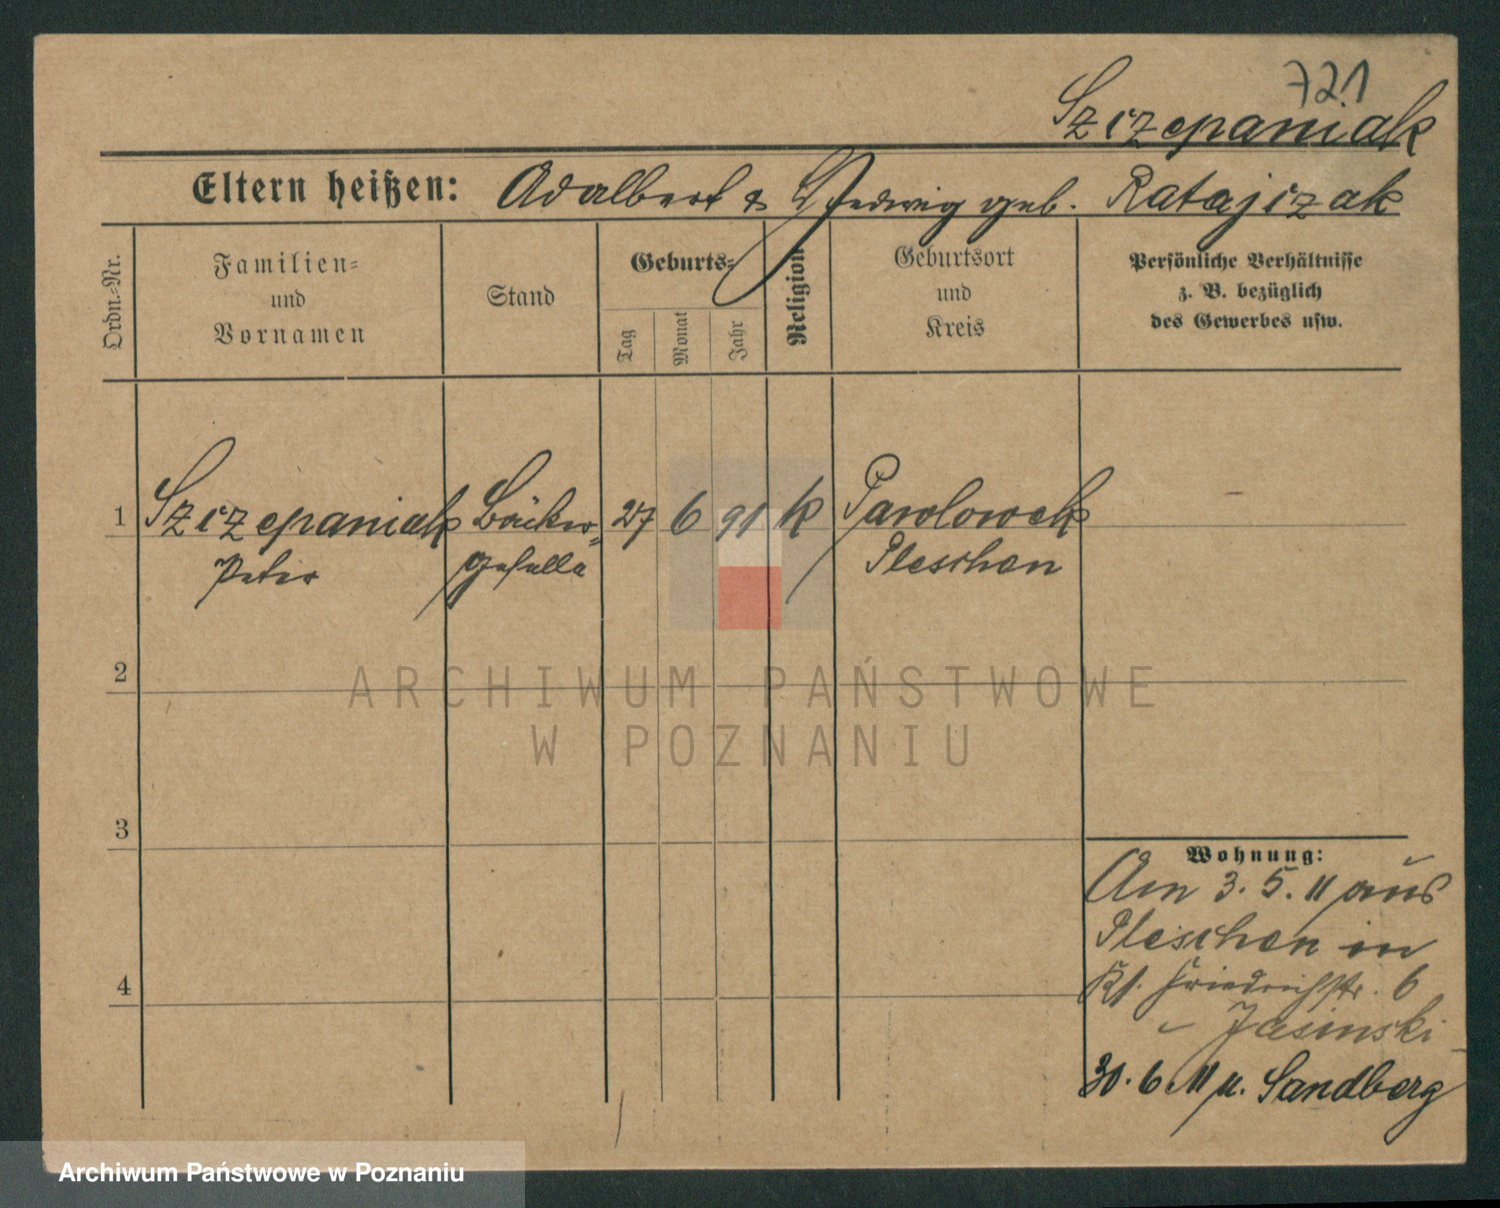 721
Szczepaniak
Eltern heißen: Adalbert & Hedwig geb. Ratajczak
Ordn.-Nr.
Familien-
und
Vornamen
Stand
Geburts-
Tag
Monat
Jahr
Religion
Geburtsort
und
Kreis
Persönliche Verhältnisse
z. B. bezüglich
des Gewerbes usw.
1 Szczepaniak Bäcker= 27 6 91 k Pawlowek
Peter geselle Pleschen
2
ARCHIWUM PAŃSTWOWE
W POZNANIU
3
Wohnung:
Am 3.5.11 aus
Pleschen in
Kl. Friedrichstr. 6
- Jasinski -
4
30.6.11 n. Sandberg
Archiwum Państwowe w Poznaniu